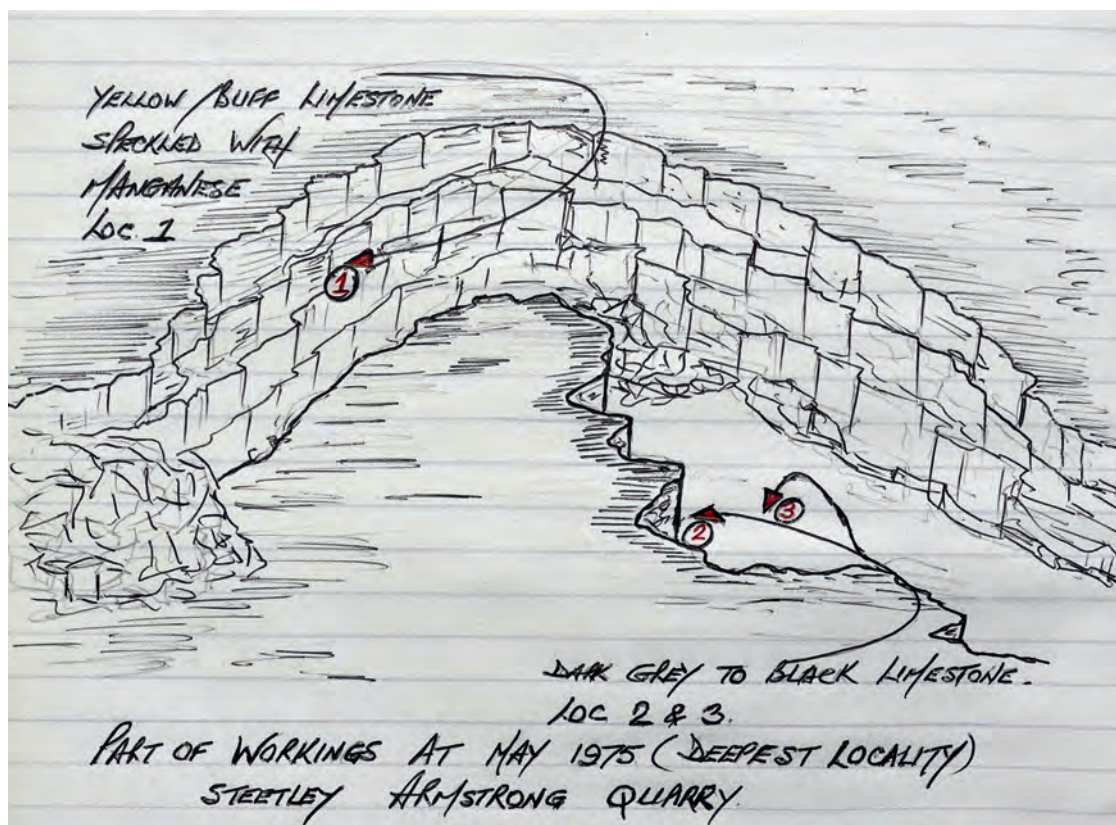 YELLOW/BUFF LIMESTONE
SPECKLED WITH
MANGANESE
LOC. 1
1
2
3
DARK GREY TO BLACK LIMESTONE.
LOC 2 & 3.
PART OF WORKINGS AT MAY 1975 (DEEPEST LOCALITY)
STEETLEY ARMSTRONG QUARRY.